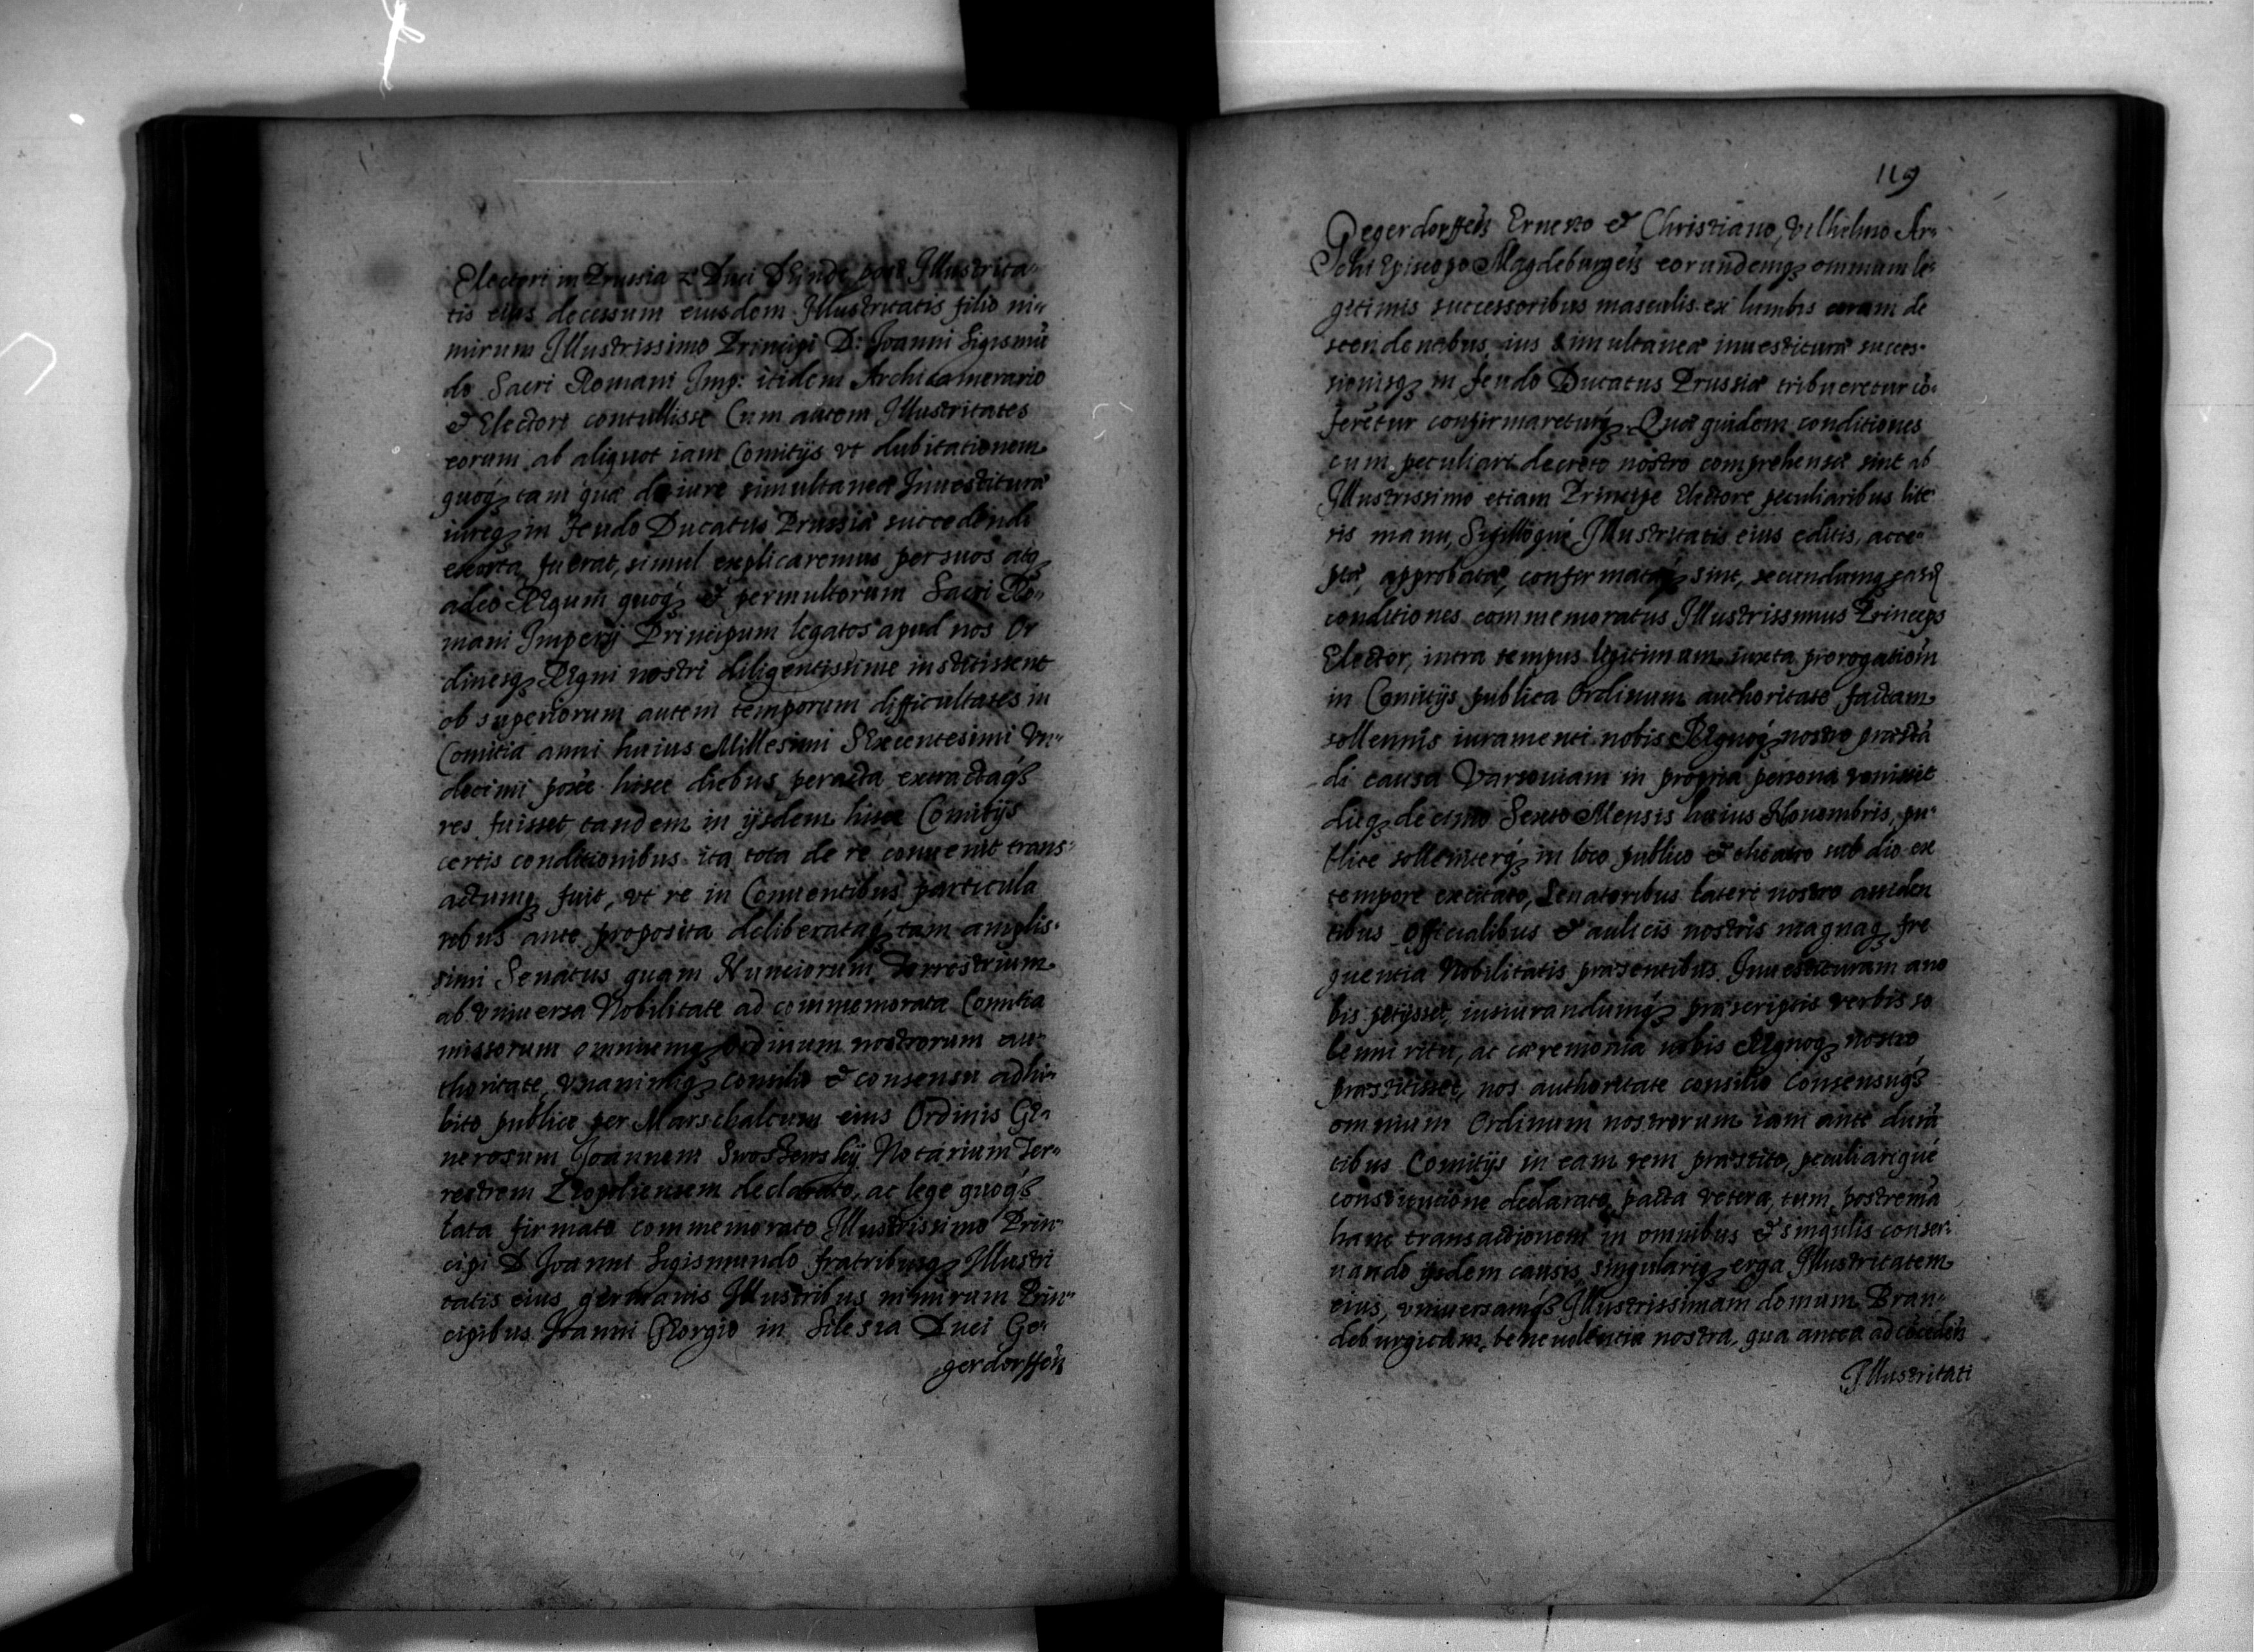 Electori in Prussia z Duci Deinde post Illustrita-
tis eius decessum eiusdem Illustritatis filio ni-
mirum Illustrissimo Principi D: Joanni Sigismū
do Sacri Romani Imp: itidem Archicamerario
& Electori contullisse Cum autem Illustritates
eorum ab aliquot iam Comitijs vt dubitationem
quoq́ tam quæ de iure simultaneæ Inuestituræ
iureq́ in Feudo Ducatus Prussiæ succedendi
exorta fuerat, simul explicaremus per suos atq́
adeo Regum quoq́ & permultorum Sacri Ro-
mani Imperij Principum legatos apud nos Or
dinesq́ Regni nostri diligentissime institissent
ob superiorum autem temporum difficultates in
Comitia anni huius Millesimi Sexcentesimi Vn-
decimi hisce diebus peracta extractaq́
res fuisset, tandem in ijsdem hisce Comitijs
certis conditionibus ita tota de re conuenit trans-
actumq́ fuit, vt re in Conuentibus particula
ribus ante proposita deliberataq́ tam amplis-
simi Senatus quam Nunciorum Terrestrium
ab vniuersa Nobilitate ad commemorata Comitia
missorum omniumq́ Ordinum nostrorum au-
thoritate, vnanimiq́ consilio & consensu adhi-
bito publice per Marschalcum eius Ordinis Ge-
nerosum Joannem Swoszewskij Notarium Ter-
restrem Leopoliensem declarato, ac lege quoq́
lata firmato commemorato Illustrissimo Prin-
cipi D Joanni Sigismundo fratribusq́ Illustri
tatis eius germanis Illustribus nimirum Prin-
cipibus Joanni Georgio in Silesia Duci Ge-
gerdorffeñ
119
Gegerdorffeñ Ernesto & Christiano, Vilhelmo Ar-
Schi Episcopo Magdeburgeñ eorundemq́ omnium le-
gitimis successoribus masculis ex lumbis eorum de
scendentibus ius simultaneæ inuestituræ succes-
sionisq́ in feudo Ducatus Prussiæ tribueretur cō-
ferētur confirmareturq́. Quæ quidem conditiones
cum peculiari decreto nostro comprehensæ sint ab
Illustrissimo etiam Principe Electore peculiaribus lite
ris manu, Sigilloque Illustritatis eius editis, acce-
ptæ, approbatæ, confirmatæq́ sint, secundumq́ easd
conditiones commemoratus Illustrissimus Princeps
Elector, intra tempus legitimum iuxta prorogationem
in Comitijs publica Ordinum authoritate factam
sollennis iuramenti nobis Regnoq́ nostro præstā
di causa Varsouiam in propria persona venisset
dieq́ decimo Sexto Mensis huius Nouembris, pu-
blice sollemniterq́ in loco publico & theatro sub dio ex
tempore excitato, Senatoribus lateri nostro asiden
tibus officialibus & aulicis nostris magnaq́ fre
quentia Nobilitatis præsentibus Inuestituram a no
bis petijsset, iusiurandumq́ præscriptis verbis so
lenni ritu, ac cæremonia nobis Regnoq́ nostro
præstitisset, nos authoritate consilio Consensuq́
omnium Ordinum nostrorum iam ante durā
tibus Comitijs in eam rem præstito, peculiarique
constitutione declarato, pacta vetera, tum postremā
hanc transactionem in omnibus & singulis conser-
uando ijsdem causis, singulariq́ erga Illustritatem
eius, vniuersamq́ Illustrissimam domum Bran-
deburgicam, beneuolentia nostra, qua antea ad
Illustritati